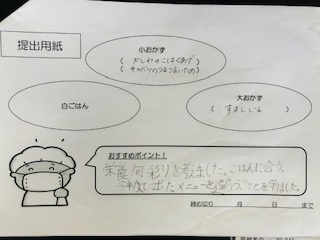 提出用紙
小おかず
( かしわのこはくあげ
キャベツのつるつるいため )
大おかず
( すましじる )
白ごはん
おすすめポイント！
栄養 彩りを考えました。ごはんに合う、
今年度に出たメニューを選ぶことを ました。
締め切り 月 日 まで